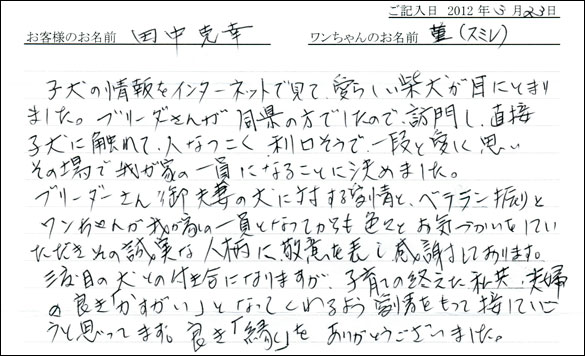 ご記入日 2012 年 3 月 23 日
お客様のお名前 田中克幸 ワンちゃんのお名前 菫(スミレ)
子犬の情報をインターネットで見て、愛らしい柴犬が目にとまり
ました。ブリーダさんが同県の方でしたので、訪問し、直接
子犬に触れて、人なつこく利口そうで一段と愛しく思い
その場で我が家の一員になることに決めました。
ブリーダーさん御夫妻の犬に対する愛情と、ベテラン振りと
ワンちゃんが我が家の一員となってからも色々とお気づかいをしてい
ただきその誠実な人柄に、敬意を表し感謝しております。
三度目の犬との付き合になりますが、子育ての終えた私共、夫婦
の良き「かすがい」となってくれるよう愛情をもって接していこ
うと思ってます。良き「縁」を ありがとうございました。